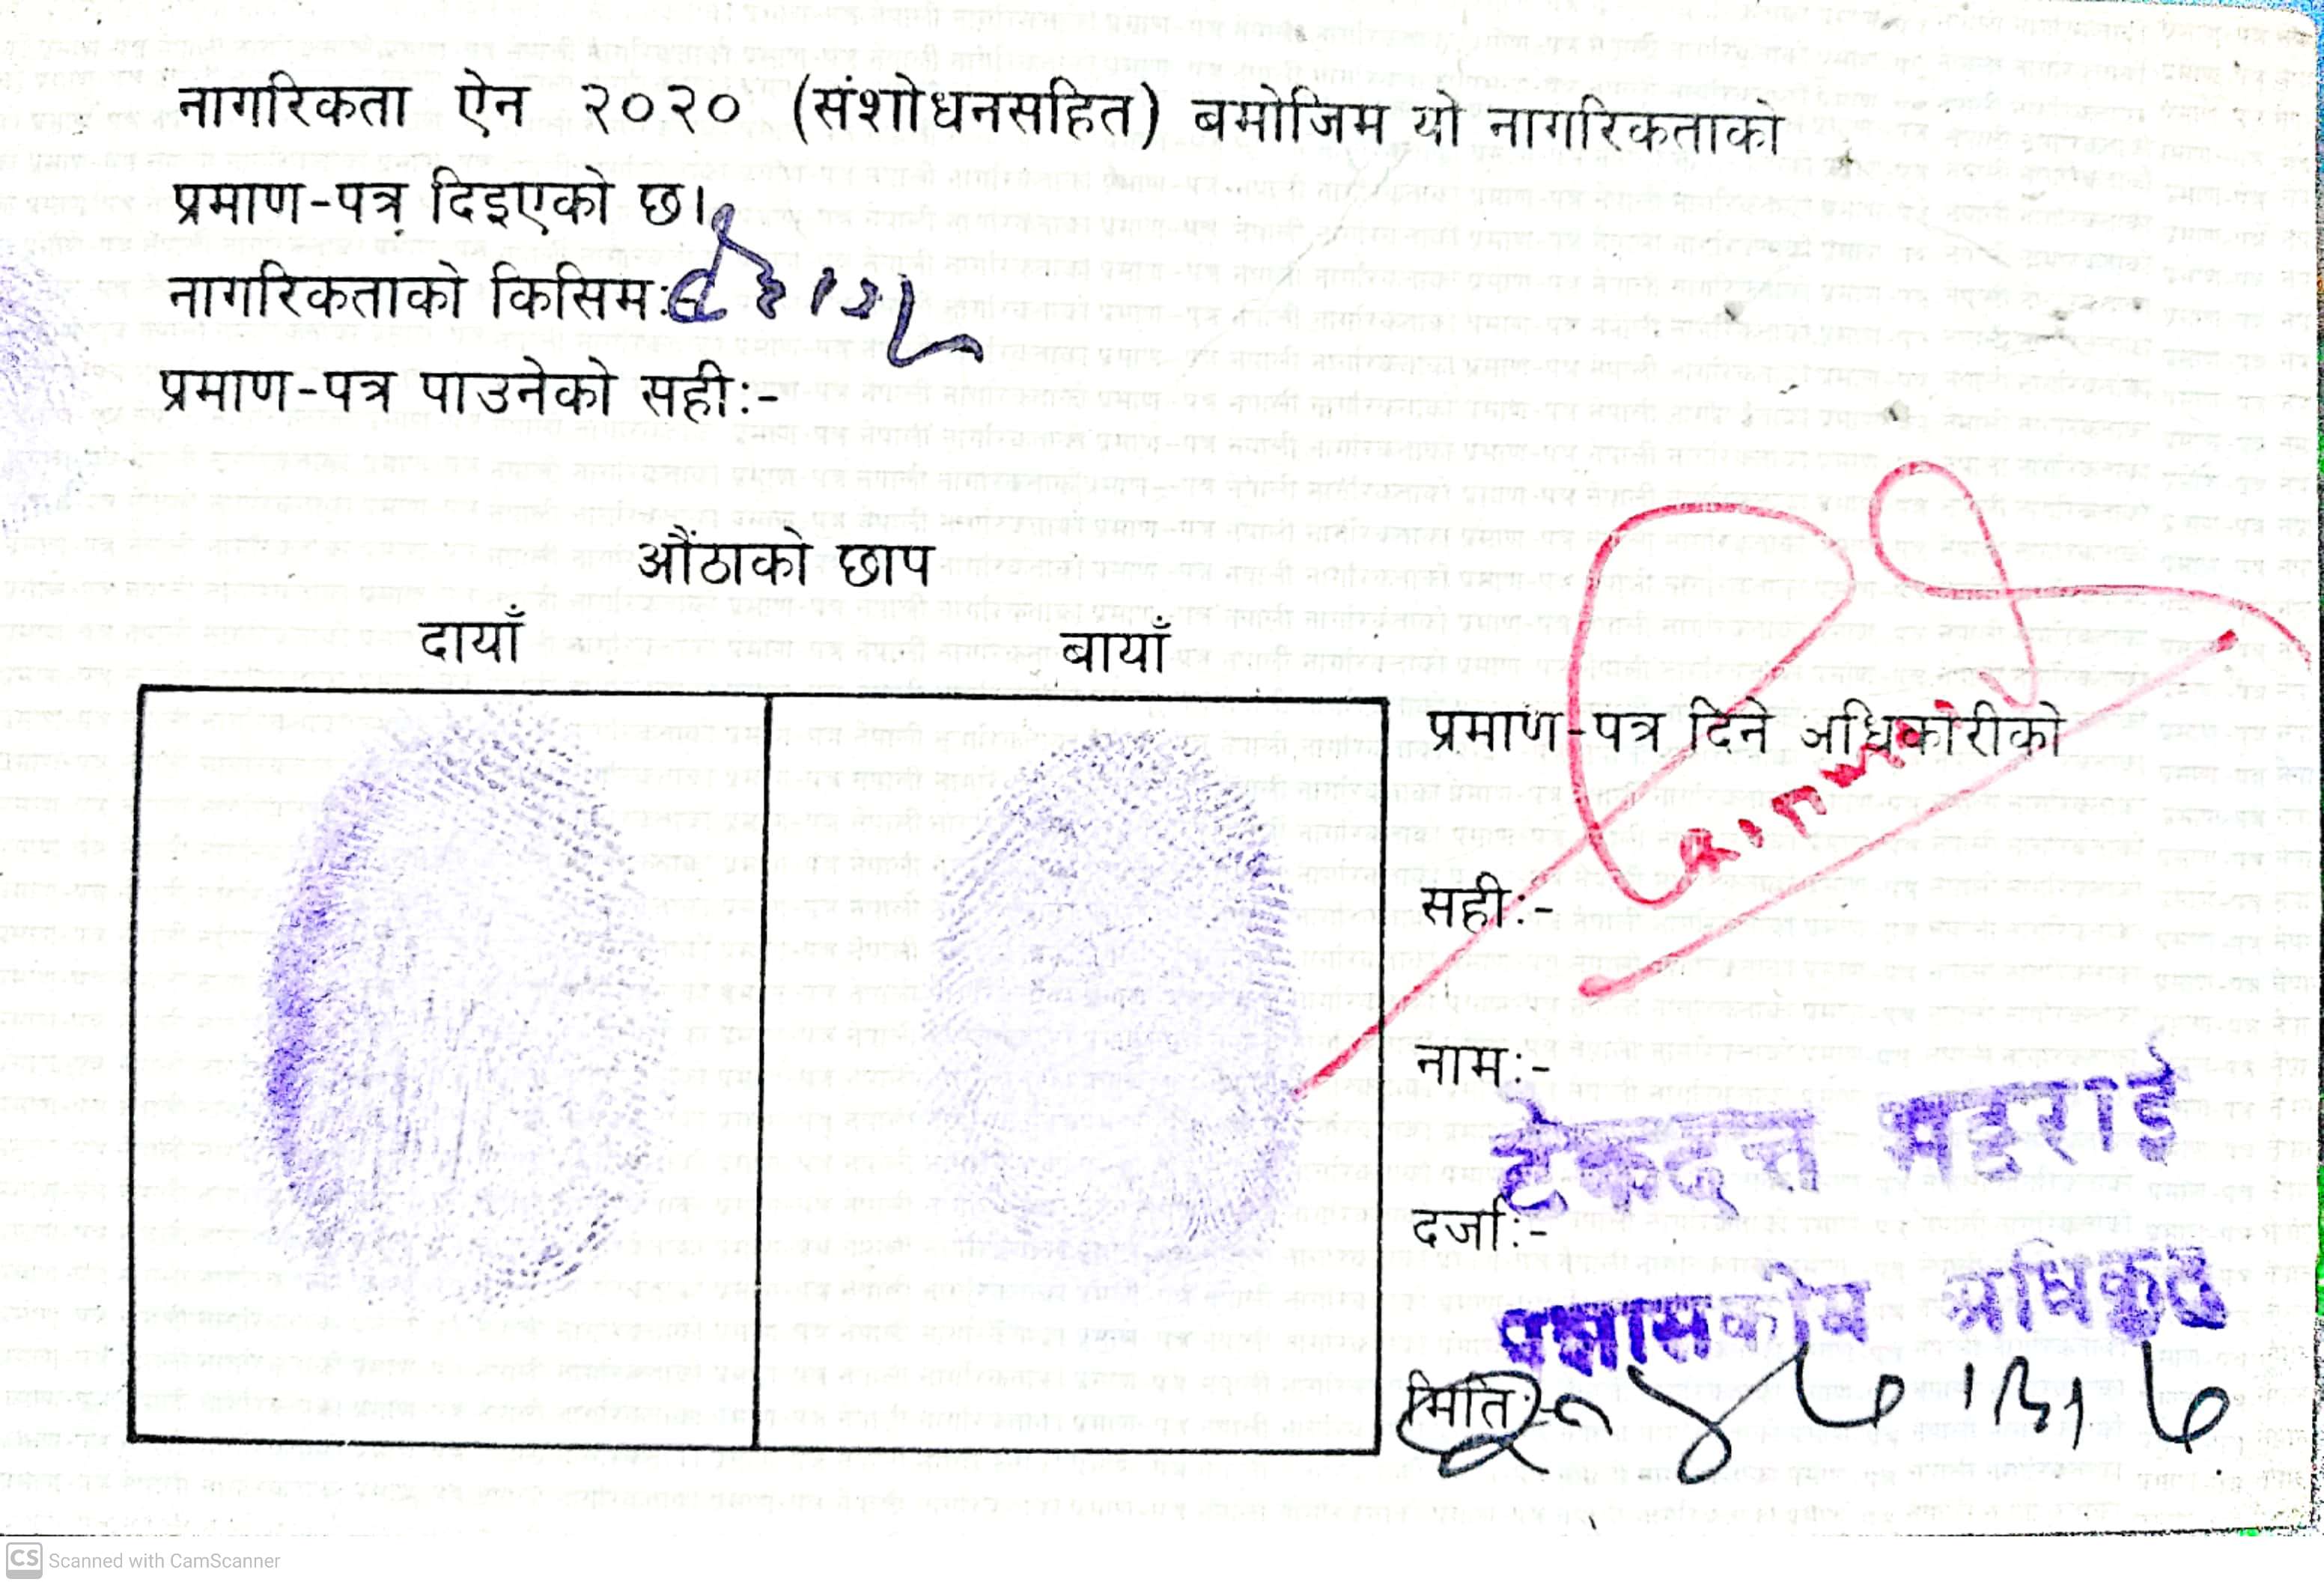 नागरिकता ऐन २०२० (संशोधनसहित) बमोजिम यो नागरिकताको
प्रमाण-पत्र दिइएको छ।
नागरिकताको किसिम:-
प्रमाण-पत्र पाउनेको सही:-
औंठाको छाप
दायाँ बायाँ
प्रमाण-पत्र दिने अधिकारीको
सही:-
नाम:-
टेकदत्त भट्टराई
दर्जा:-
प्रशासकीय अधिकृत
मिति:-
CS Scanned with CamScanner